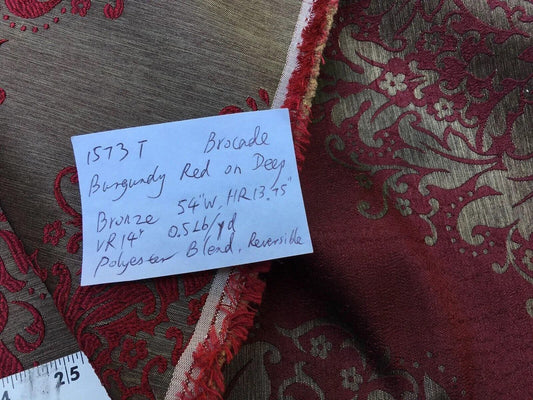 1573T Brocade
Burgundy Red on Deep
Bronze 54"W, HR13.75"
VR14" 0.5Lb/yd
Polyester Blend, Reversible
25